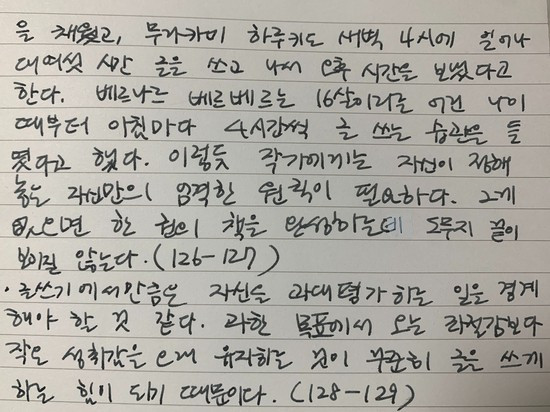 을 채웠고, 무라카미 하루키도 새벽 4시에 일어나
대여섯 시간 글을 쓰고 나서 오후 시간을 보냈다고
한다. 베르나르 베르베르는 16살이라는 어린 나이
때부터 아침마다 4시간씩 글 쓰는 습관을 들
였다고 했다. 이렇듯 작가에게는 자신이 정해
놓은 자신만의 엄격한 원칙이 필요하다. 그게
없으면 한 권의 책을 완성하는데 도무지 끝이
보이질 않는다. (126-127)
· 글쓰기에서만큼은 자신을 과대평가 하는 일을 경계
해야 할 것 같다. 과한 목표에서 오는 좌절감보다
작은 성취감을 오래 유지하는 것이 꾸준히 글을 쓰게
하는 힘이 되기 때문이다. (128-129)